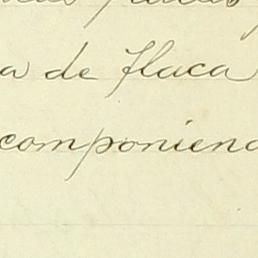 a de flaca
componiend